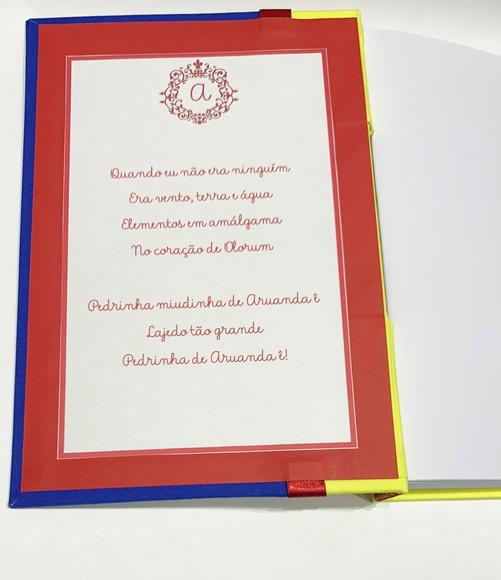 a
Quando eu não era ninguém
Era vento, terra e água
Elementos em amálgama
No coração de Olorum
Pedrinha miudinha de Aruanda ê
Lajedo tão grande
Pedrinha de Aruanda ê!